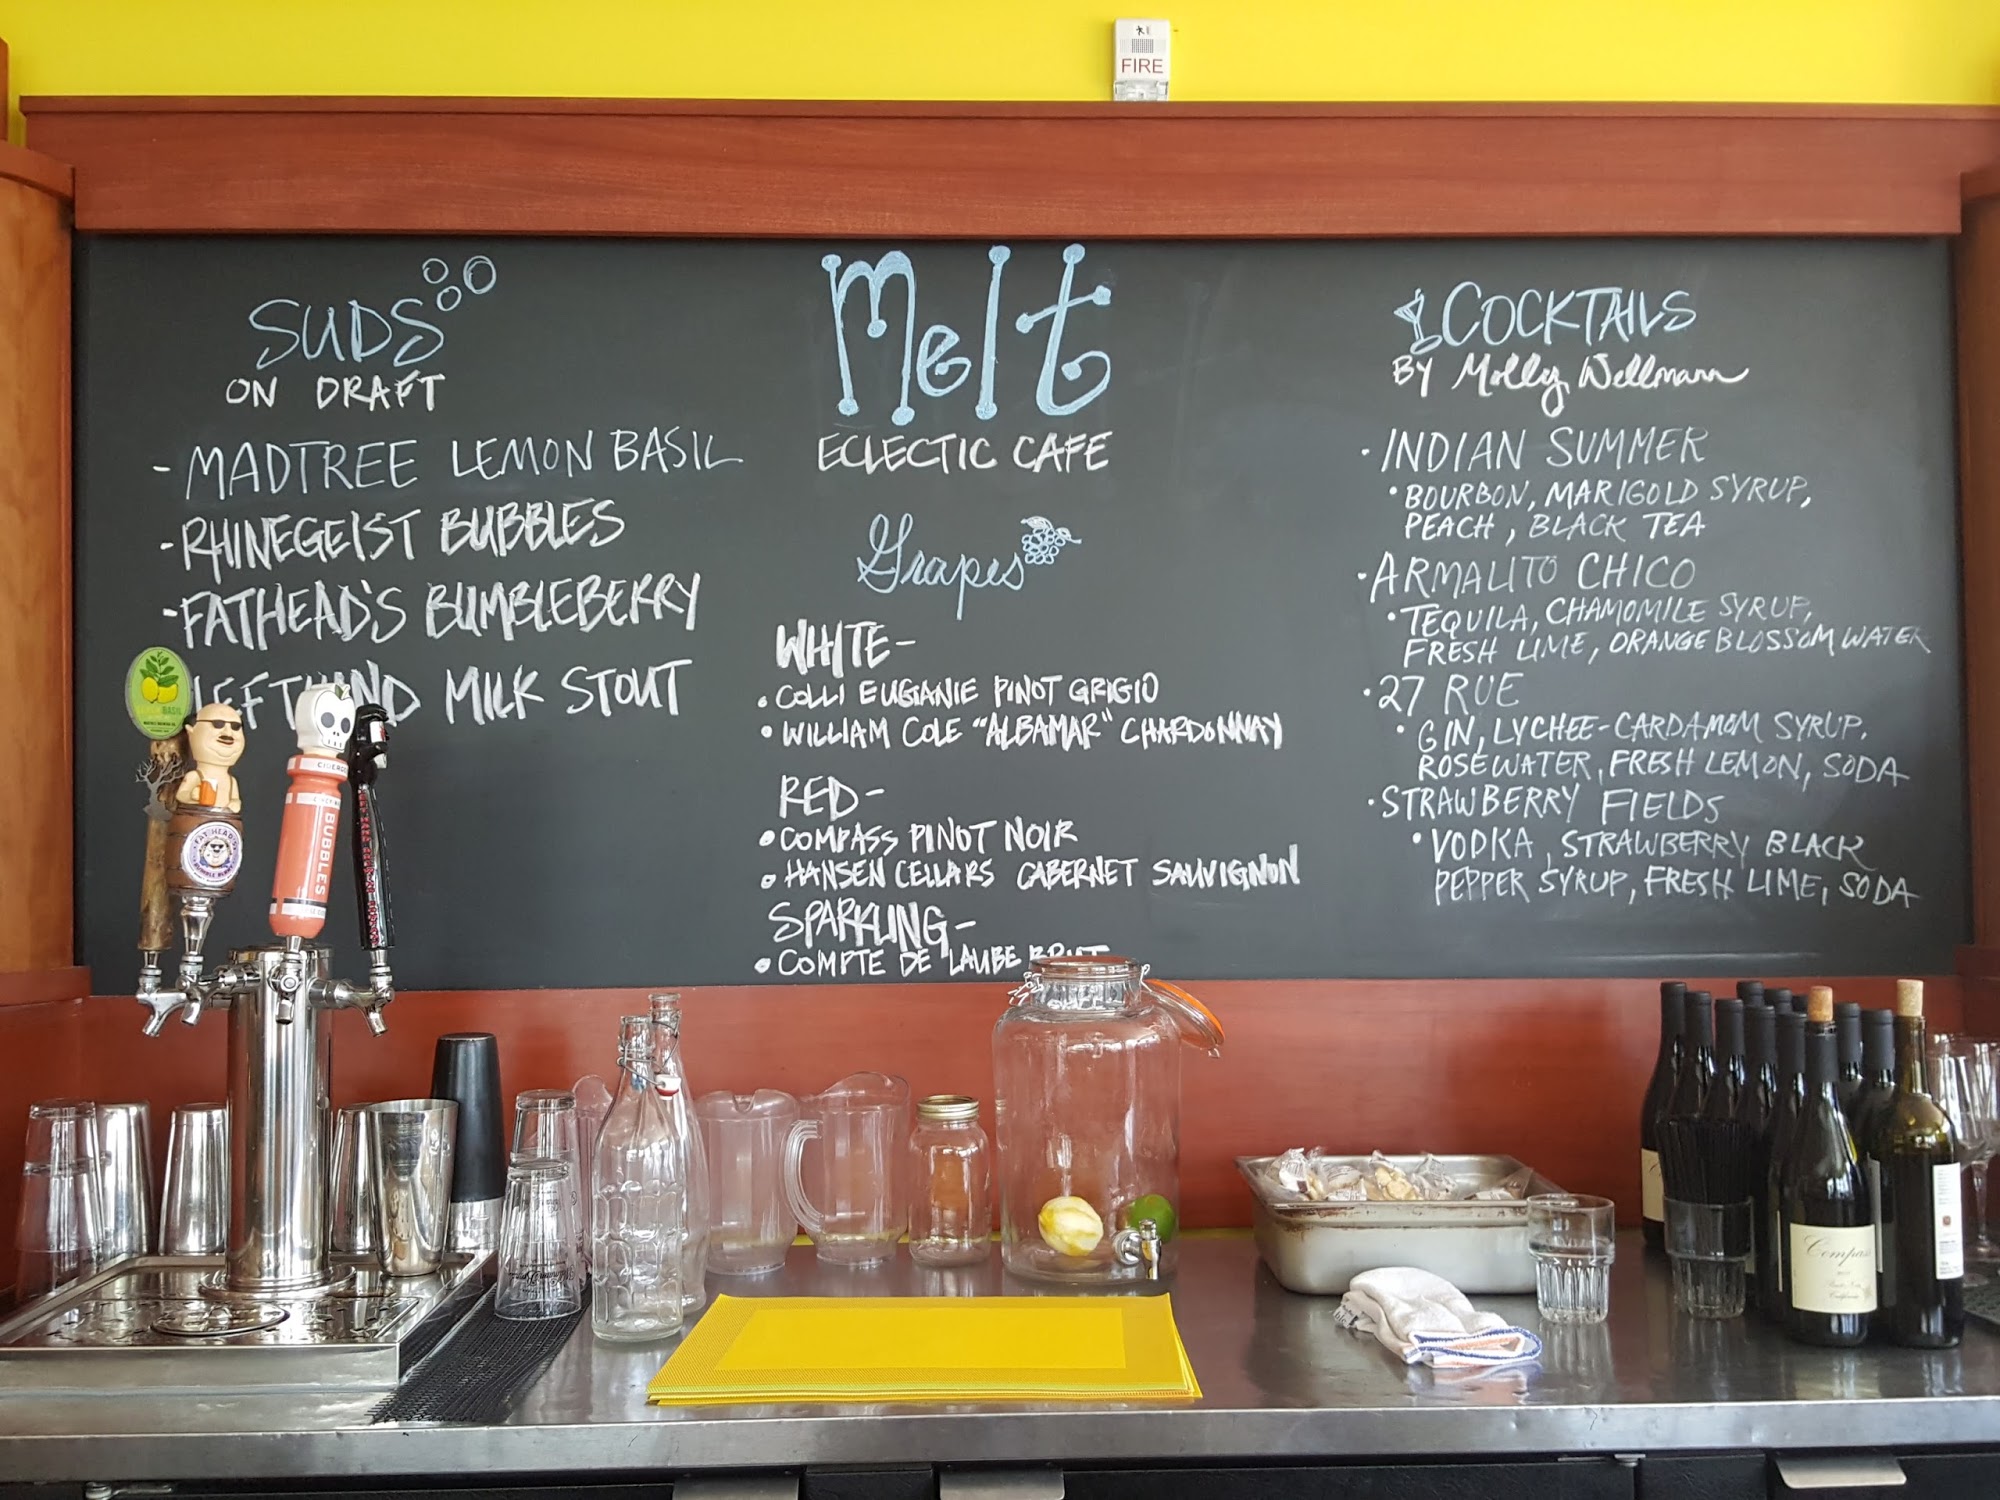 FIRE
SUDS
ON DRAFT
- MADTREE LEMON BASIL
- RHINEGEIST BUBBLES
- FATHEAD'S BUMBLEBERRY
LEFTHAND MILK STOUT
Melt
ECLECTIC CAFE
Grapes
WHITE -
• COLLI EUGANIE PINOT GRIGIO
• WILLIAM COLE "ALBAMAR" CHARDONNAY
RED -
• COMPASS PINOT NOIR
• HANSEN CELLARS CABERNET SAUVIGNON
SPARKLING -
• COMPTE DE LAUBE BRUT
COCKTAILS
BY Molly Wellmann
• INDIAN SUMMER
• BOURBON, MARIGOLD SYRUP,
PEACH, BLACK TEA
• ARMALITO CHICO
• TEQUILA, CHAMOMILE SYRUP,
FRESH LIME, ORANGE BLOSSOM WATER
• 27 RUE
• GIN, LYCHEE-CARDAMOM SYRUP,
ROSEWATER, FRESH LEMON, SODA
• STRAWBERRY FIELDS
• VODKA, STRAWBERRY BLACK
PEPPER SYRUP, FRESH LIME, SODA
BASIL
FAT HEAD'S
BUBBLES
Compass
Pinot Noir
California